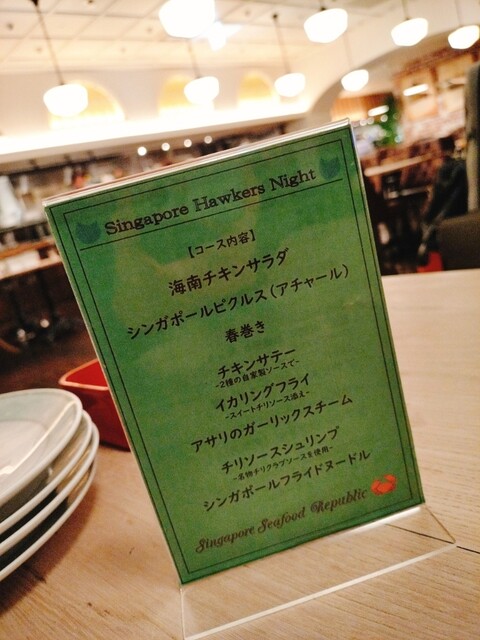 Singapore Hawkers Night
【コース内容】
海南チキンサラダ
シンガポールピクルス(アチャール)
春巻き
チキンサテー
-2種の自家製ソースで-
イカリングフライ
-スイートチリソース添え-
アサリのガーリックスチーム
チリソースシュリンプ
-名物チリクラブソースを使用-
シンガポールフライドヌードル
Singapore Seafood Republic